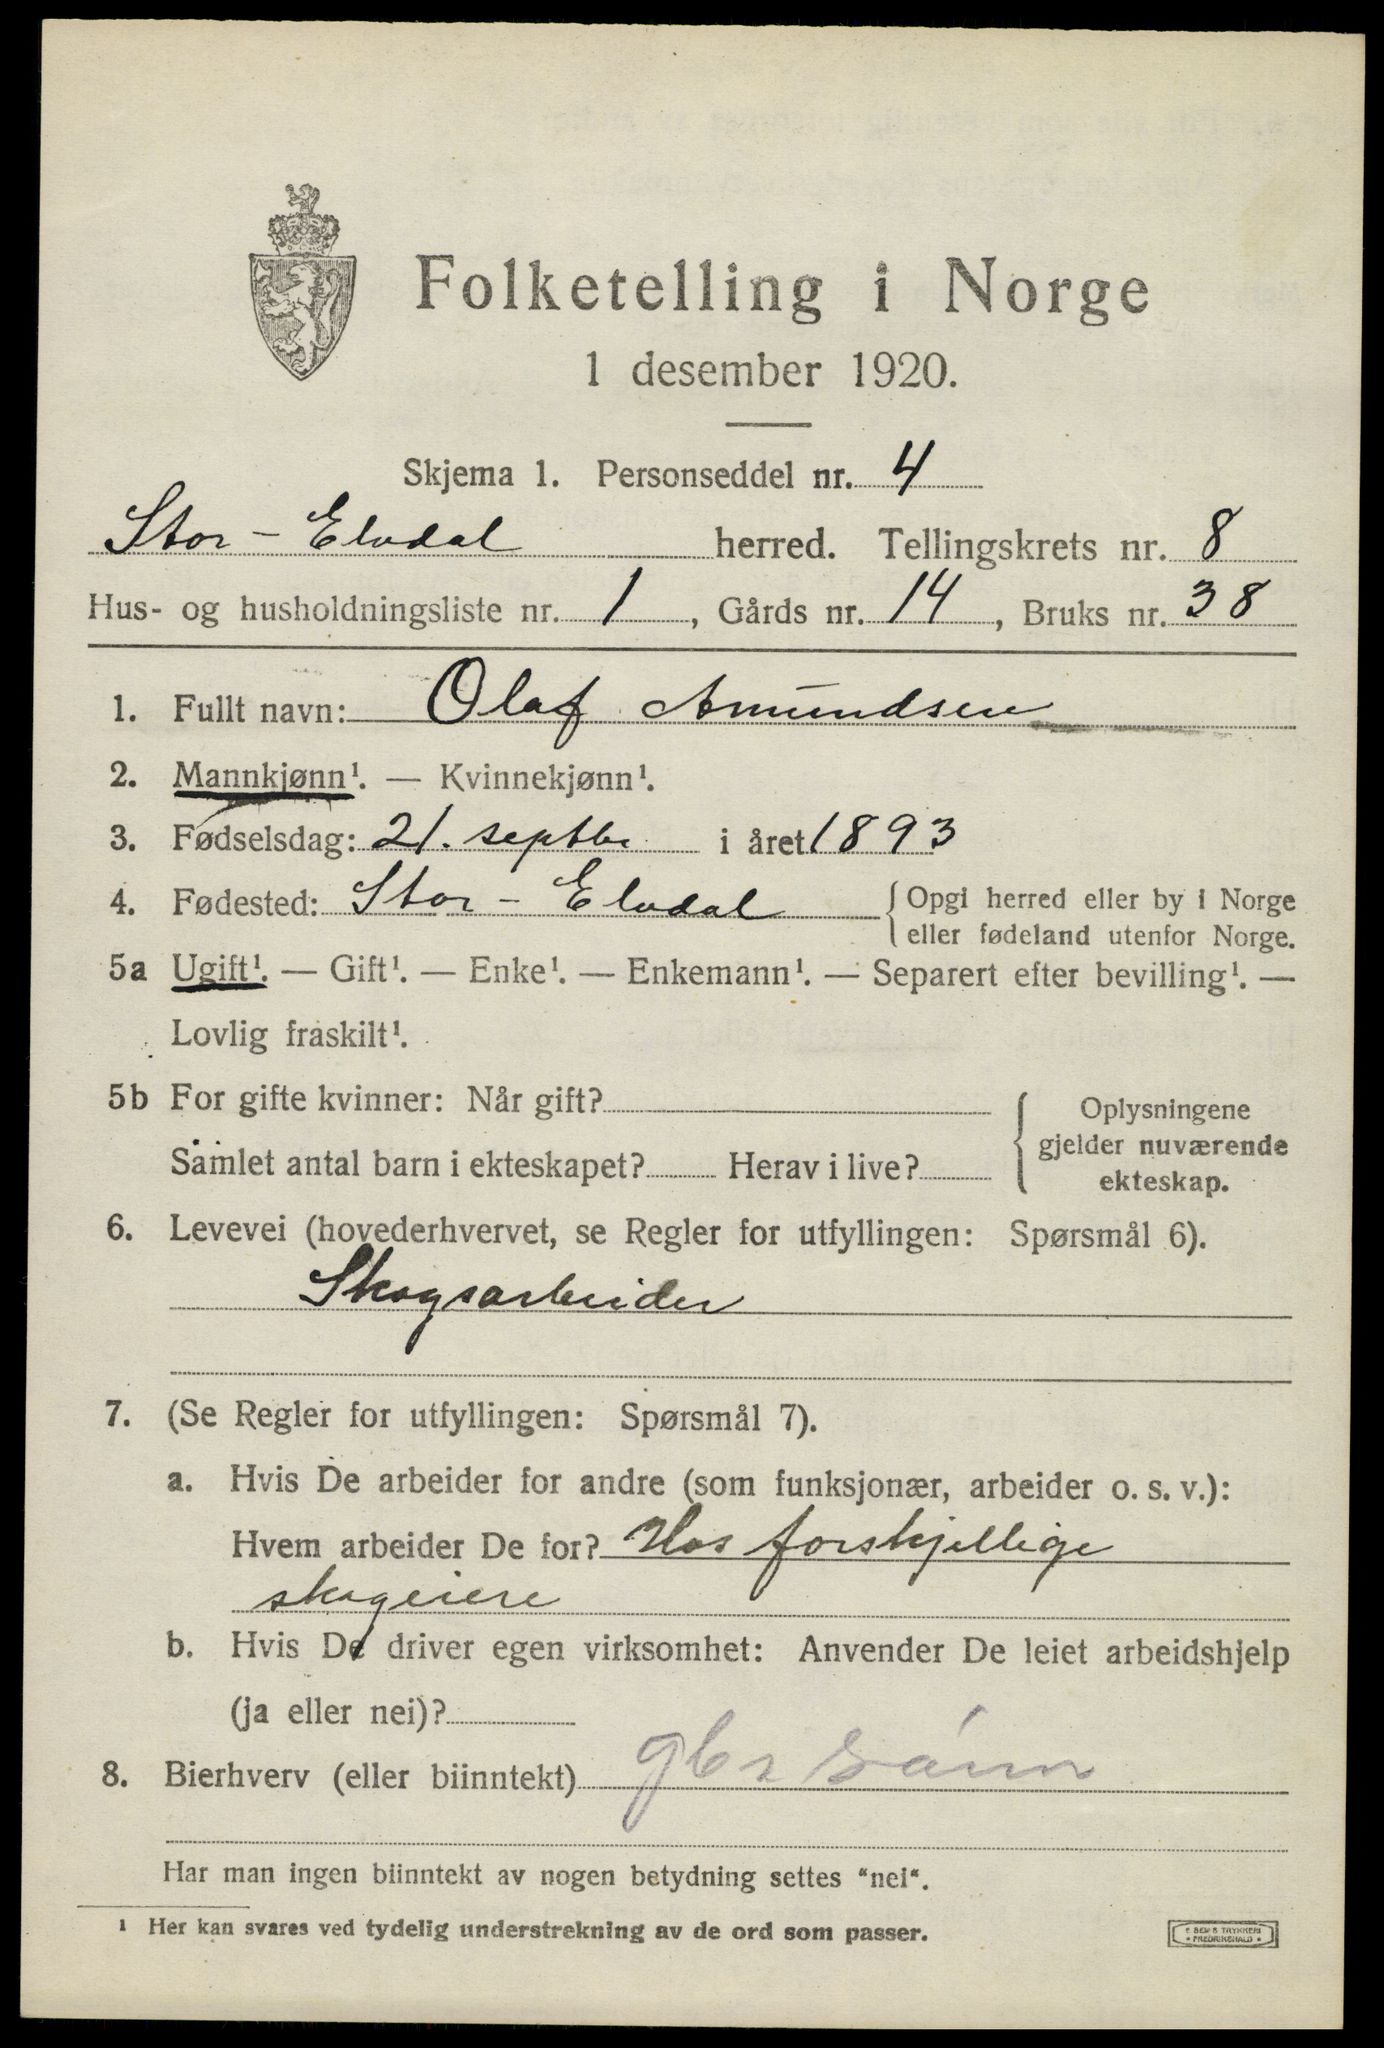 Folketelling i Norge
1 desember 1920.
Skjema 1. Personseddel nr. 4
Stor-Elvdal herred. Tellingskrets nr. 8
Hus- og husholdningsliste nr. 1, Gårds nr. 14, Bruks nr. 38
1. Fullt navn: Olaf Amundsen
2. Mannkjønn¹. — Kvinnekjønn¹.
3. Fødselsdag: 21. septbr i året 1893
4. Fødested: Stor-Elvdal { Opgi herred eller by i Norge
eller fødeland utenfor Norge.
5a Ugift¹. — Gift¹. — Enke¹. — Enkemann¹. — Separert efter bevilling¹. —
Lovlig fraskilt¹.
5b For gifte kvinner: Når gift?
Samlet antal barn i ekteskapet? Herav i live?
{ Oplysningene
gjelder nuværende
ekteskap.
6. Levevei (hovederhvervet, se Regler for utfyllingen: Spørsmål 6).
Skogsarbeider
7. (Se Regler for utfyllingen: Spørsmål 7).
a. Hvis De arbeider for andre (som funksjonær, arbeider o. s. v.):
Hvem arbeider De for? Hos forskjellige
skogeiere
b. Hvis De driver egen virksomhet: Anvender De leiet arbeidshjelp
(ja eller nei)?
8. Bierhverv (eller biinntekt)
Har man ingen biinntekt av nogen betydning settes "nei".
1 Her kan svares ved tydelig understrekning av de ord som passer.